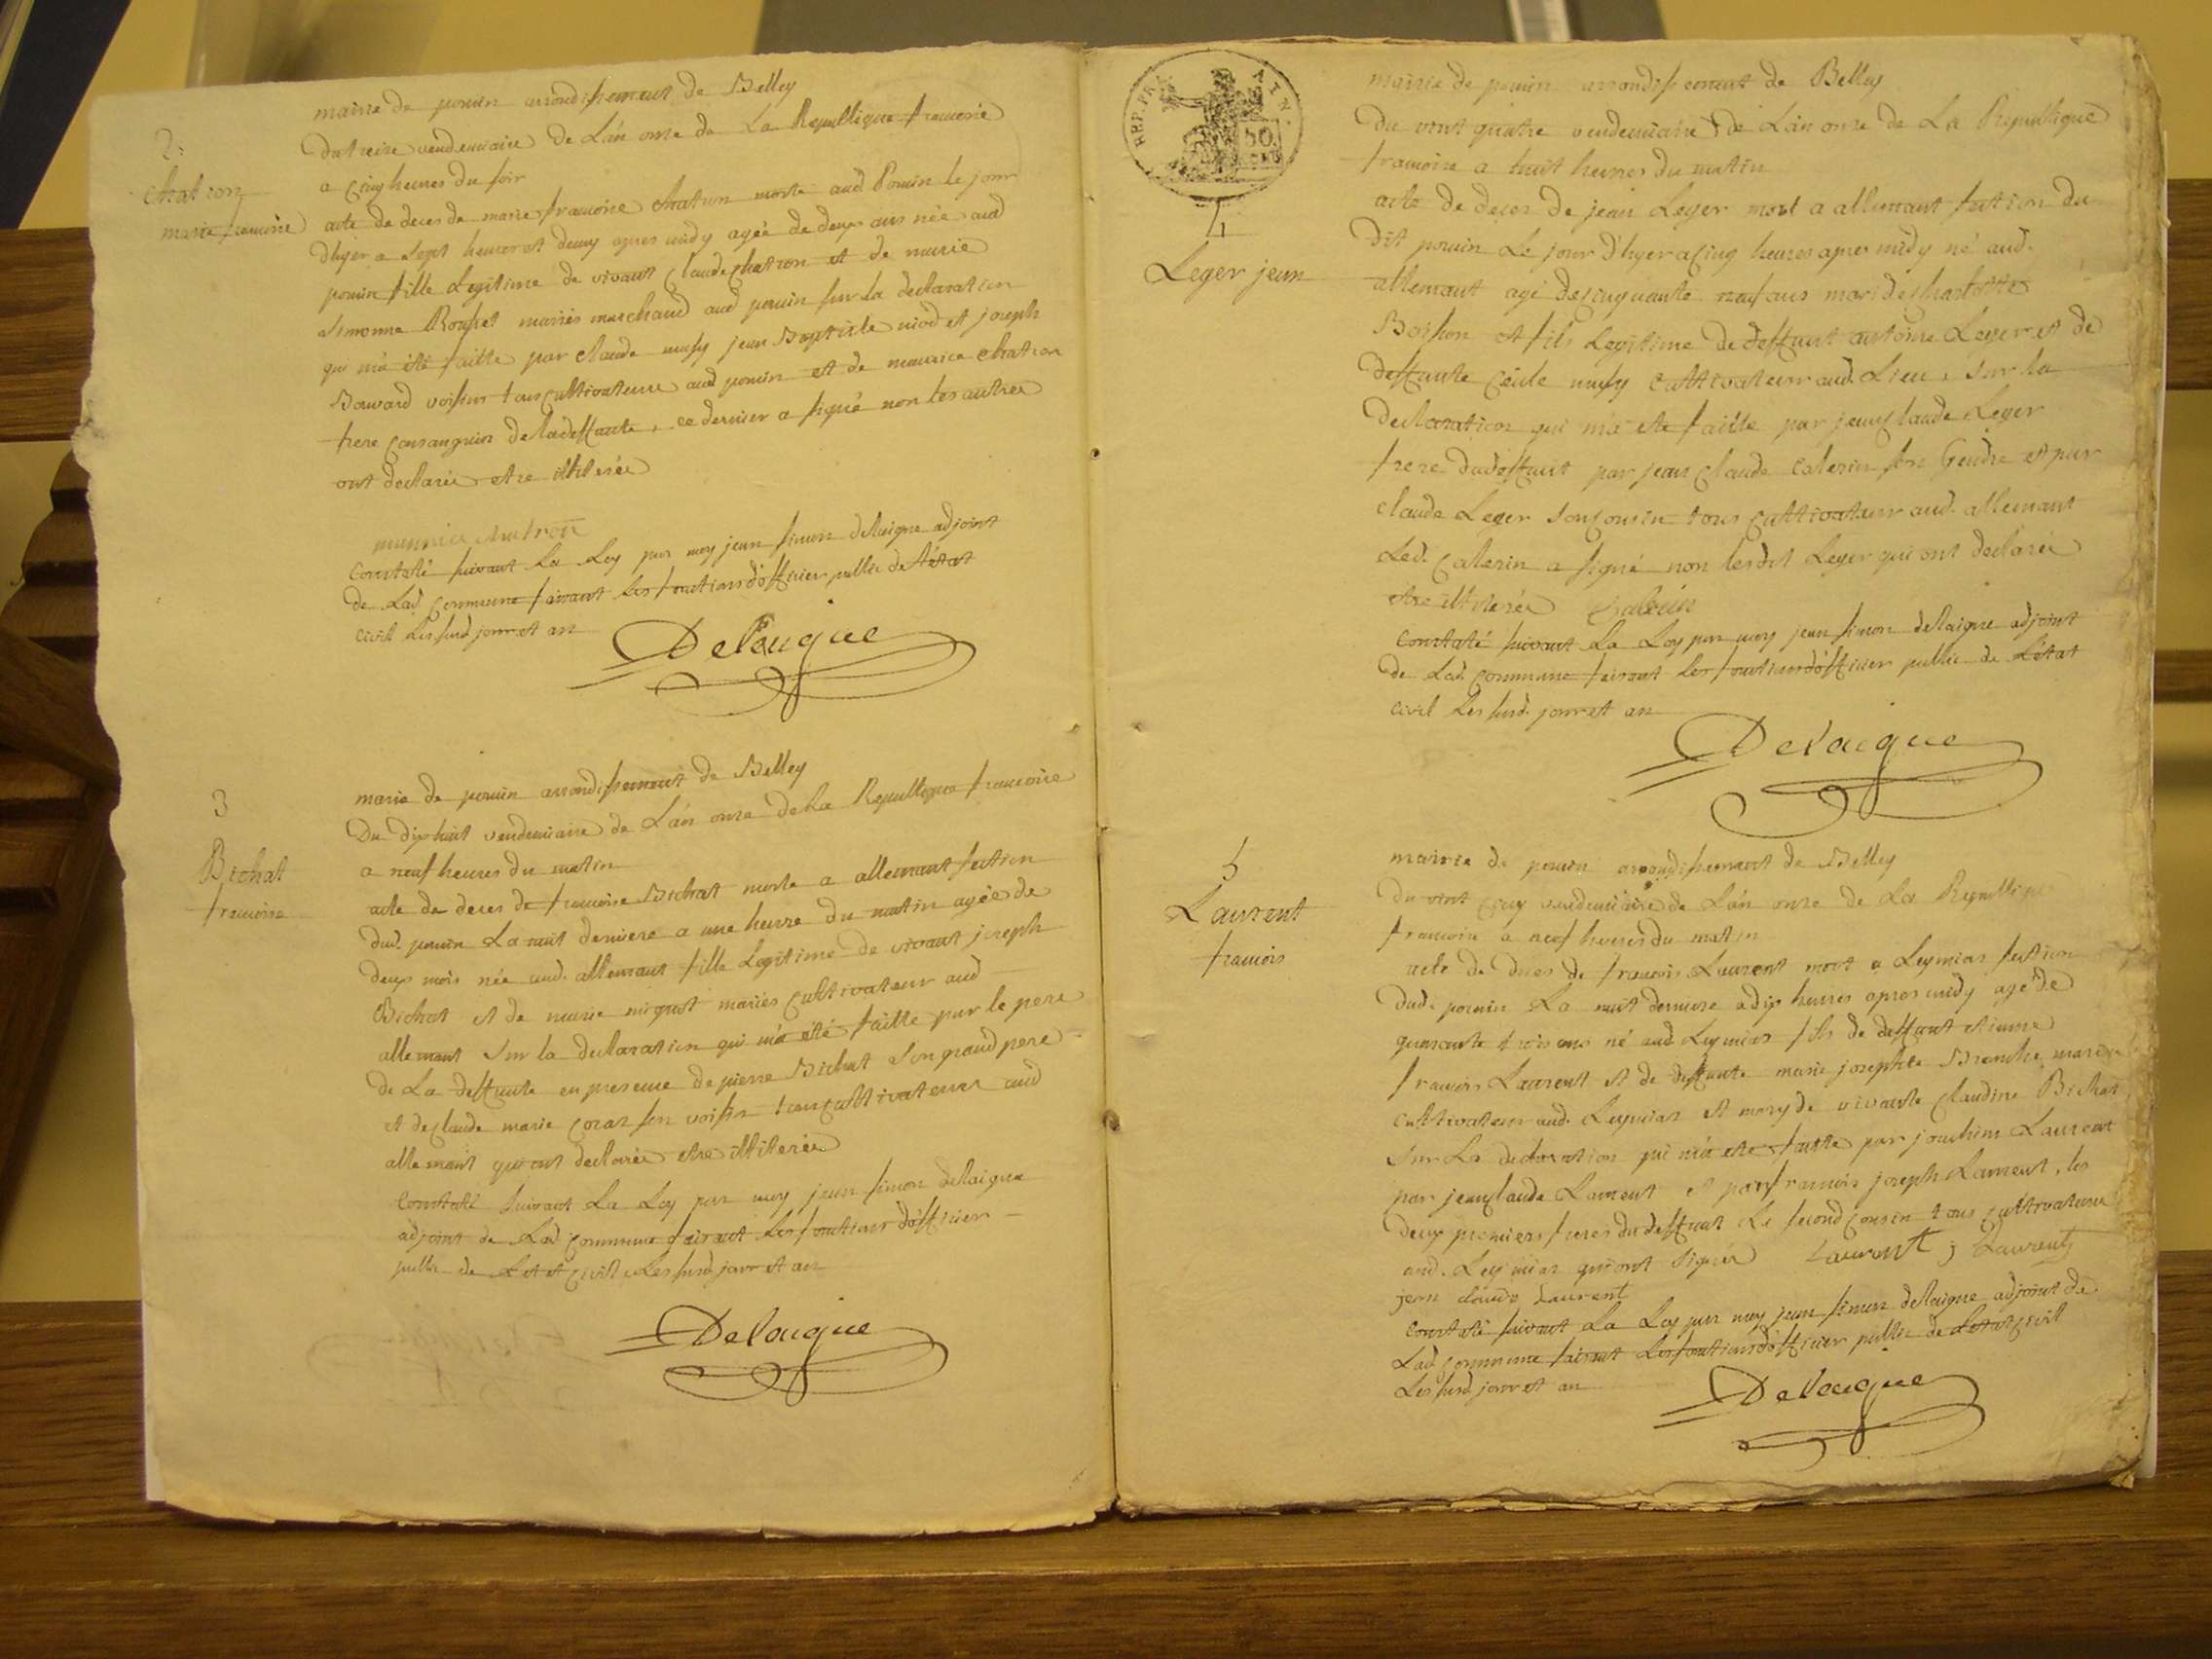 2.
chatron
marie francoise
mairie de poncin arrondissement de Belley
du treize vendemiaire de L'an onze de La Republique francoise
a cinq heures du soir
acte de deces de marie francoise chatron morte aud Poncin le jour
d'hyer a sept heures et demy apres midy agée de deux ans née aud
poncin fille Legitime de vivant Claude chatron et de marie
simonne Rousset mariés marchand aud poncin sur la declaration
qui m'a été faitte par claude musy jean Baptiste niod et joseph
Bouvard voisins tous cultivateurs aud poncin et de maurice chatron
frere consanguin de la deffunte, ce dernier a signé non les autres
ont declarés etre illiterés
maurice chatron
Constaté suivant La Loy par moy jean simon delaigue adjoint
de Lad commune faisant les fonctions d'officier public de l'état
civil Les susd jour et an
Delaigue
3
Bichat
francoise
mairie de poncin arrondissement de Belley
Du dix huit vendemiaire de L'an onze de La Republique francoise
a neuf heures du matin
acte de deces de francoise Bichat morte a allemant section
dud. poncin La nuit derniere a une heure du matin agée de
deux mois née aud. allemant fille Legitime de vivant joseph
Bichat et de marie miquat mariés cultivateur aud
allemant sur la declaration qui m'a été faitte par le pere
de La deffunte en presence de pierre Bichat son grand pere
et de claude marie coraz son voisin tous cultivateurs aud
allemant qui ont declarés etre illiterés
Constaté suivant La Loy par moy jean simon delaigue
adjoint de Lad commune faisant les fonctions d'officier
public de L'etat civil Les susd jour et an
Delaigue
REP. FRA.
50.
CENT
4
Leger jean
mairie de poncin arrondissement de Belley
Du vint quatre vendemiaire de L'an onze de La Republique
francoise a huit heures du matin
acte de deces de jean Leger mort a allemant section du
dit poncin Le jour d'hyer a cinq heures apres midy né aud.
allemant agé de cinquante neuf ans mari de charlotte
Boisson et fils Legitime de deffunt antoine Leger et de
deffunte musy cultivateur aud. Lieu, sur la
declaration qui m'a ete faitte par jean claude Leger
frere dud deffunt par jean claude Calerin son Gendre et par
claude Leger son cousin tous cultivateur aud. allemant
Led. Calerin a signé non les dit Leger qui ont declarés
etre illiterés Calerin
Constaté suivant La Loy par moy jean simon delaigue adjoint
de Lad. commune faisant les fonctions d'officier public de L'état
civil Les susd. jour et an
Delaigue
5
Laurent
francois
mairie de poncin arrondissement de Belley
Du vint cinq vendemiaire de L'an onze de La Republique
francoise a neuf heures du matin
acte de deces de francois Laurent mort a Leymiaz section
dud. poncin La nuit derniere a dix heures apres midy agé de
quarante trois ans né aud Leymiaz fils de deffunt etienne
francois Laurent et de deffunte marie josephte mariés
cultivateurs aud. Leymiaz et mary de vivante claudine Bichat
sur La declaration qui m'a ete faitte par joachim Laurent
par jean claude Laurent et par francois joseph Laurent, les
deux premiers freres du deffunt Le second cousin tous cultivateurs
aud. Leymiaz qui ont signés Laurent j Laurent
jean claude Laurent
Constaté suivant La Loy par moy jean simon delaigue adjoint de
Lad commune faisant Les fonctions d'officier public de L'etat civil
Les susd jour et an
Delaigue